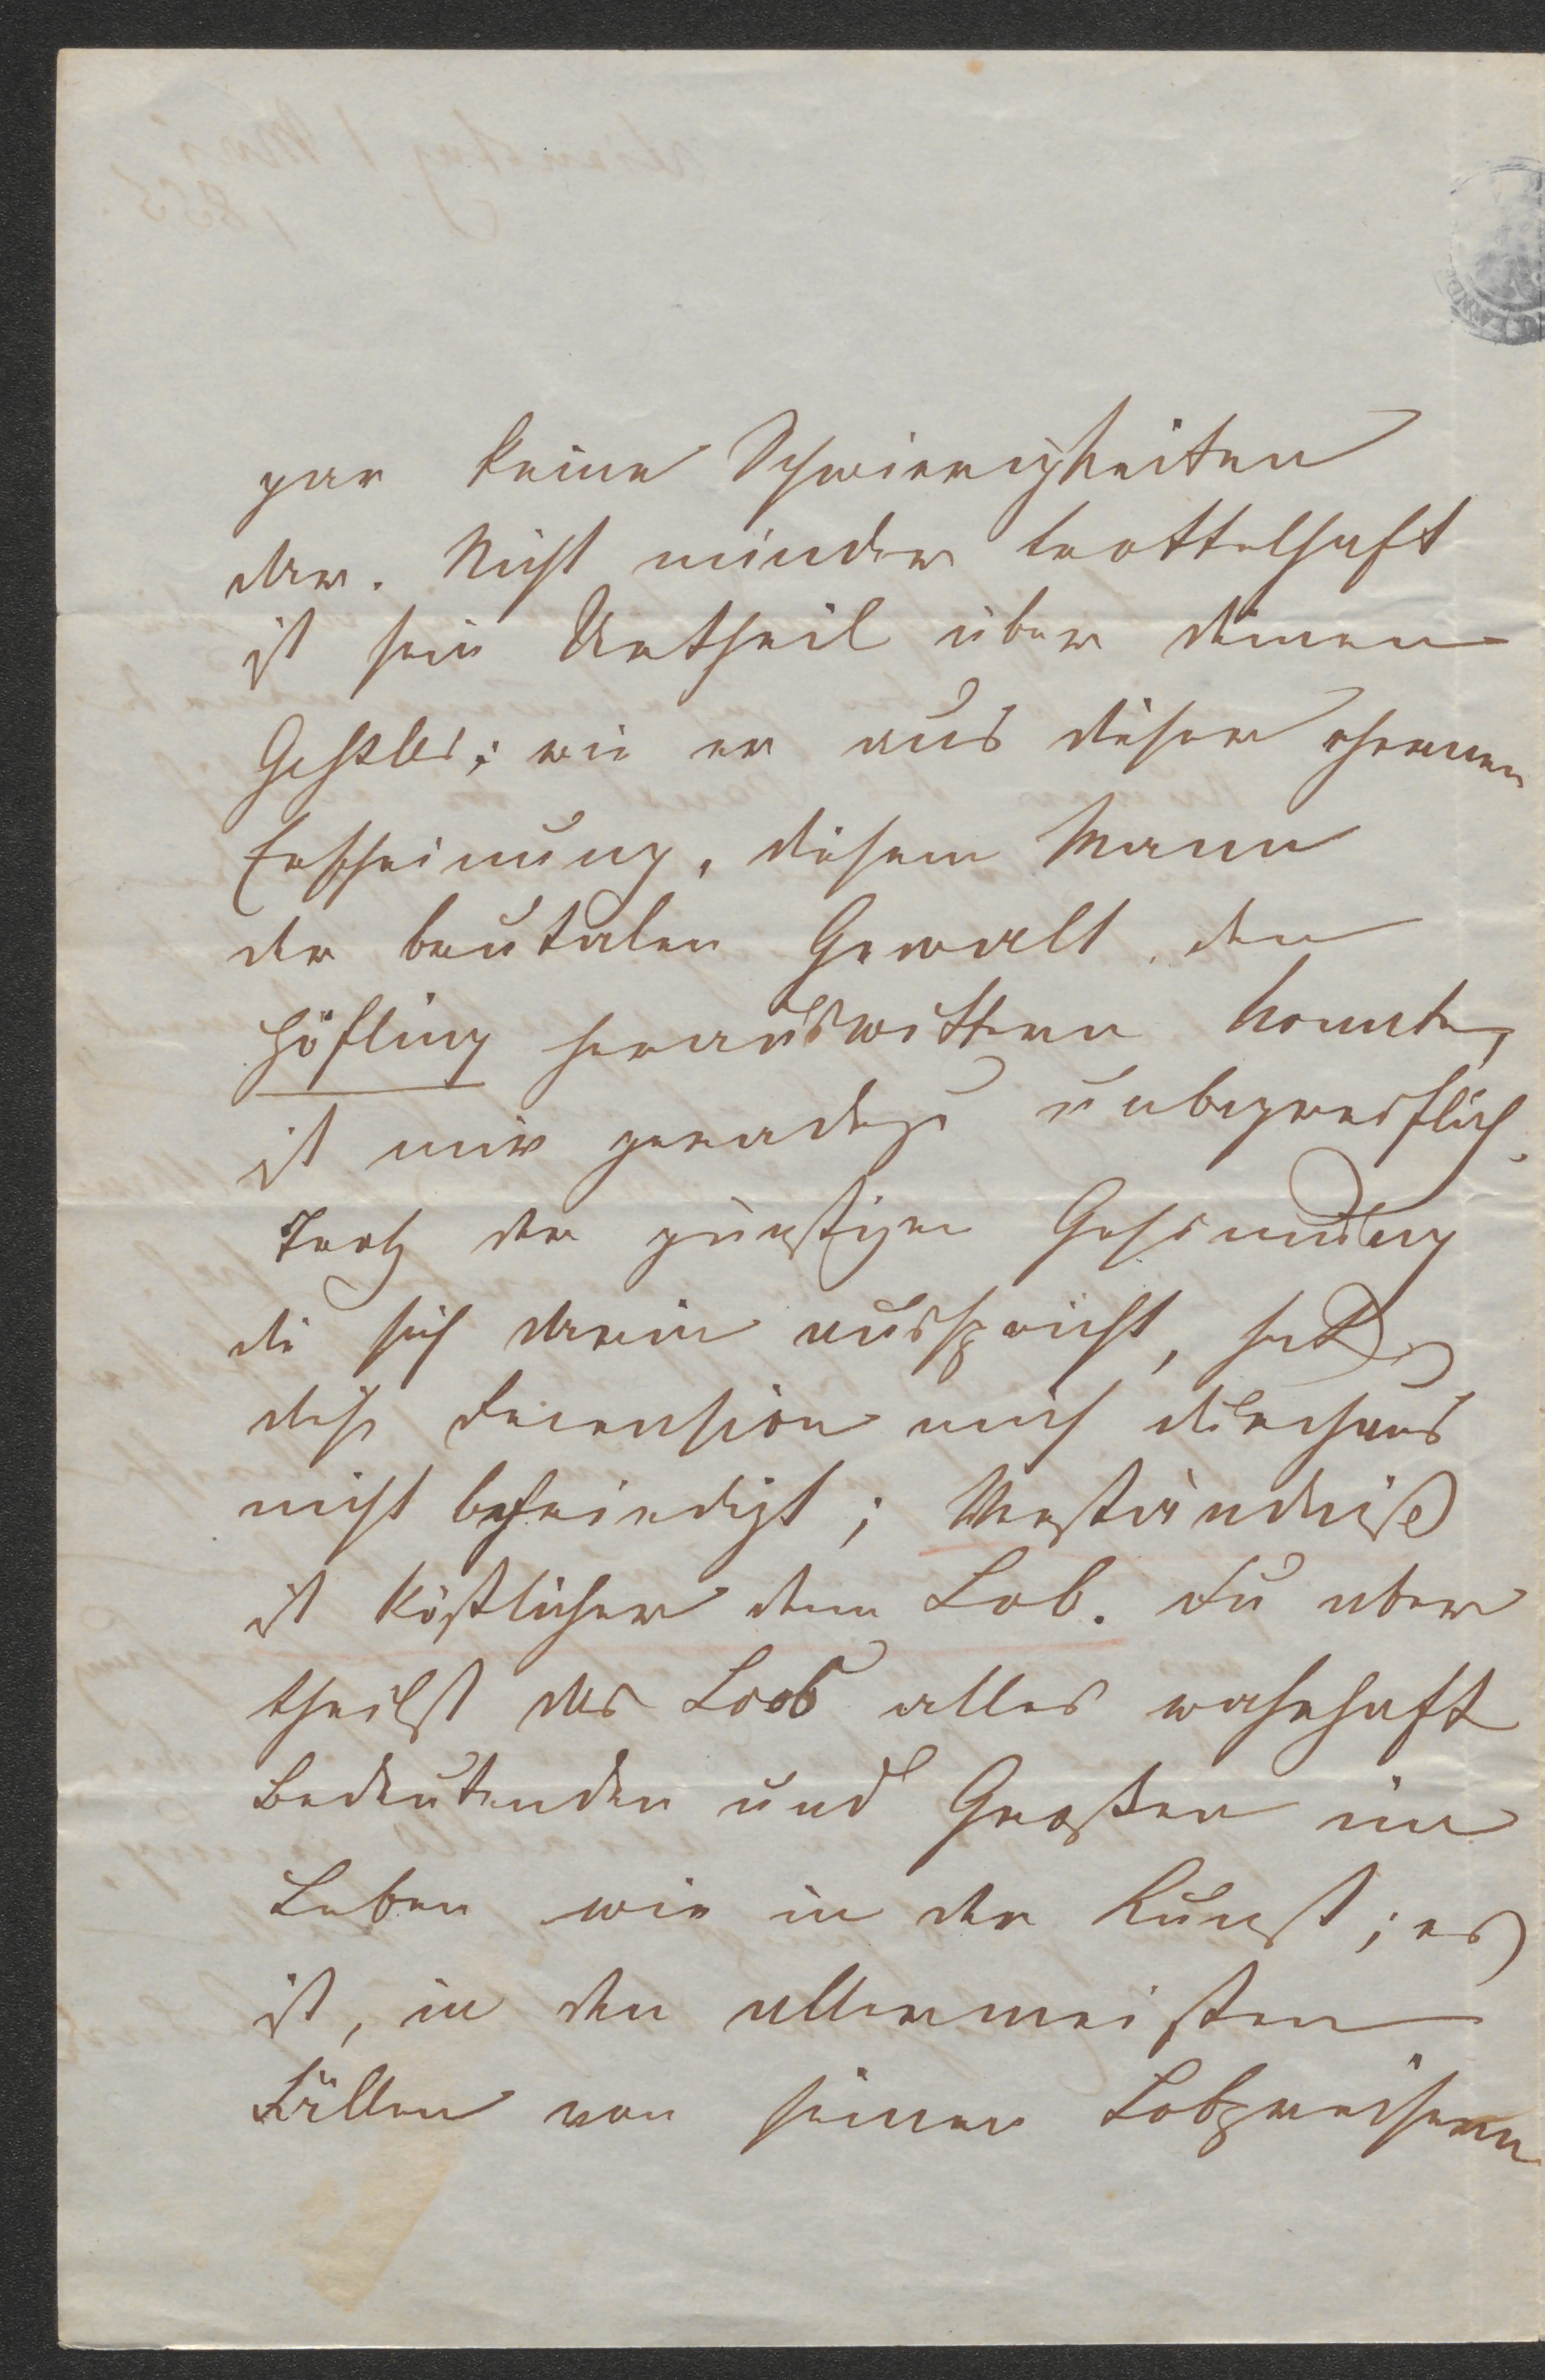 gar keine Schwierigkeiten
dar. Nicht minder trottelhaft
ist sein Urtheil über deinen
Geßler; wie er aus dieser ehernen
Erscheinung, diesem Mann
der brutalen Gewalt den
Höfling herauswittern konnte,
ist mir geradezu unbegreiflich.
Trotz der günstigen Gesinnung
die sich darin ausspricht, hat
diese Recension mich durchaus
nicht befriedigt; Verständniß
ist köstlicher denn Lob. Du aber
theilst das Loos alles wahrhaft
Bedeutenden und Großen im
Leben wie in der Kunst; es
ist, in den allermeisten
Fällen von seinen Lobpreisern